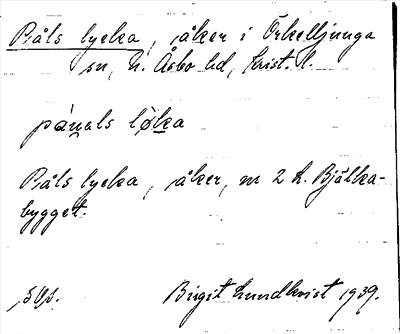 Påls lycka, åker i Örkelljunga
sn, n. Åsbo hd, Krist. l.
Påls lycka, åker, nr 2 h. Bjälka-
bygget.
Birgit Lundkvist 1939.